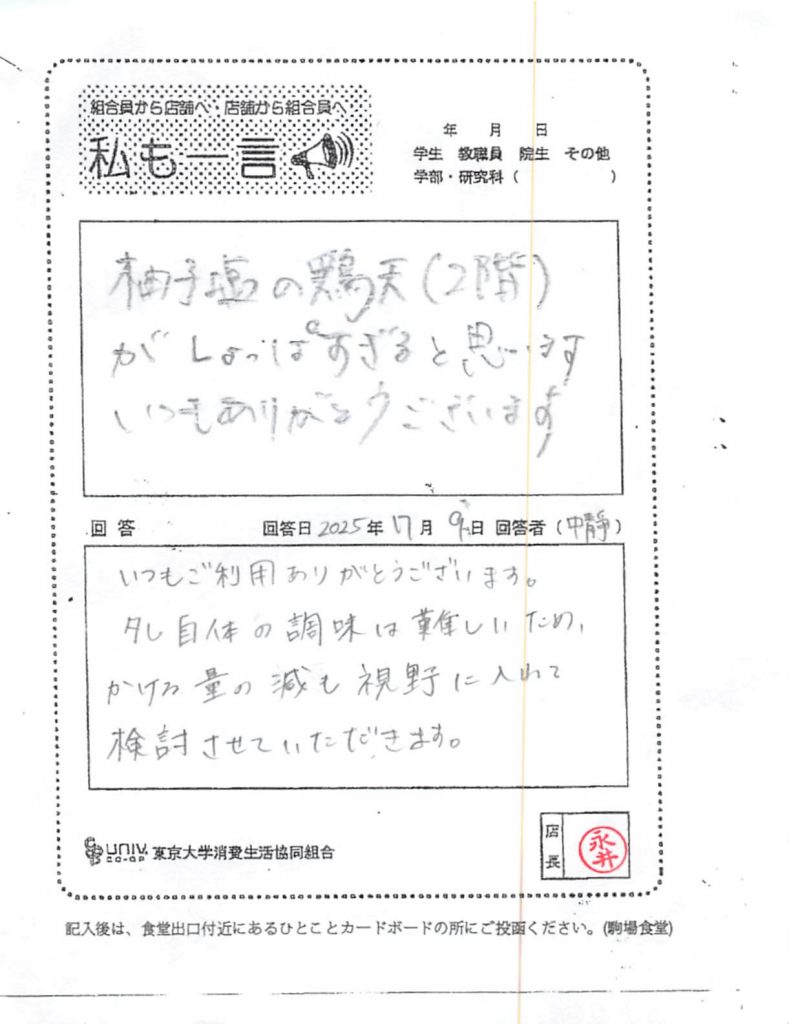 組合員から店舗へ・店舗から組合員へ
私も一言
年 月 日
学生 教職員 院生 その他
学部・研究科( )
柚子塩の鶏天(2階)
がしょっぱすぎると思います
いつもありがとうございます
回答 回答日 2025年 月 9日 回答者(中静)
いつもご利用ありがとうございます。
タレ自体の調味は難しいため、
かける量の減も視野に入れて
検討させていただきます。
UNIV. CO-OP 東京大学消費生活協同組合
店長 永井
記入後は、食堂出口付近にあるひとことカードボードの所にご投函ください。(駒場食堂)